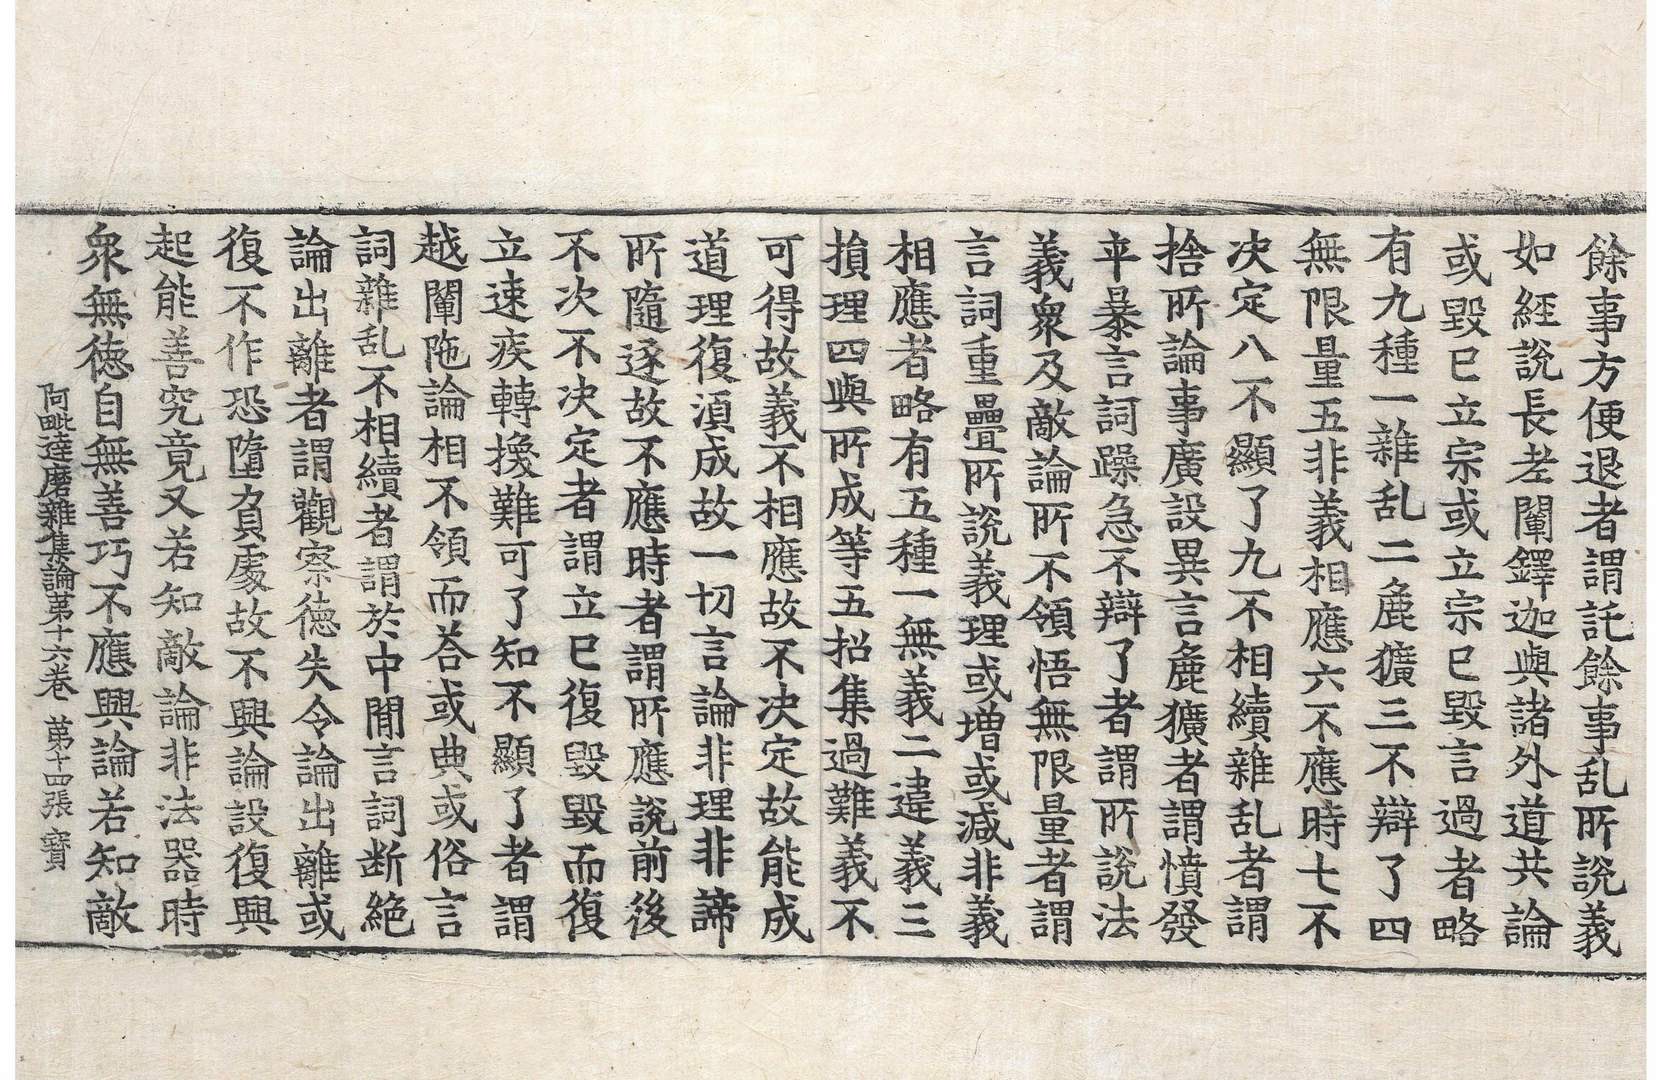 餘事方便退者謂託餘事乱所說義
如經說長老闡鐸迦與諸外道共論
或毀已立宗或立宗已毀言過者略
有九種一雜乱二麁獷三不辯了四
無限量五非義相應六不應時七不
决定八不顯了九不相續雜乱者謂
捨所論事廣設異言麁獷者謂憤發
卒暴言詞躁急不辯了者謂所說法
義衆及敵論所不領悟無限量者謂
言詞重疊所說義理或增或減非義
相應者略有五種一無義二違義三
損理四與所成等五招集過難義不
可得故義不相應故不决定故能成
道理復湏成故一切言論非理非諦
所隨逐故不應時者謂所應說前後
不次不决定者謂立已復毀毀而復
立速疾轉換難可了知不顯了者謂
越闡陁論相不領而荅或典或俗言
詞雜乱不相續者謂於中間言詞断絶
論出離者謂觀察徳失令論出離或
復不作恐墮負處故不興論設復興
起能善究竟又若知敵論非法器時
衆無徳自無善巧不應興論若知敵
阿毗達磨雜集論第十六卷 第十四張 寶